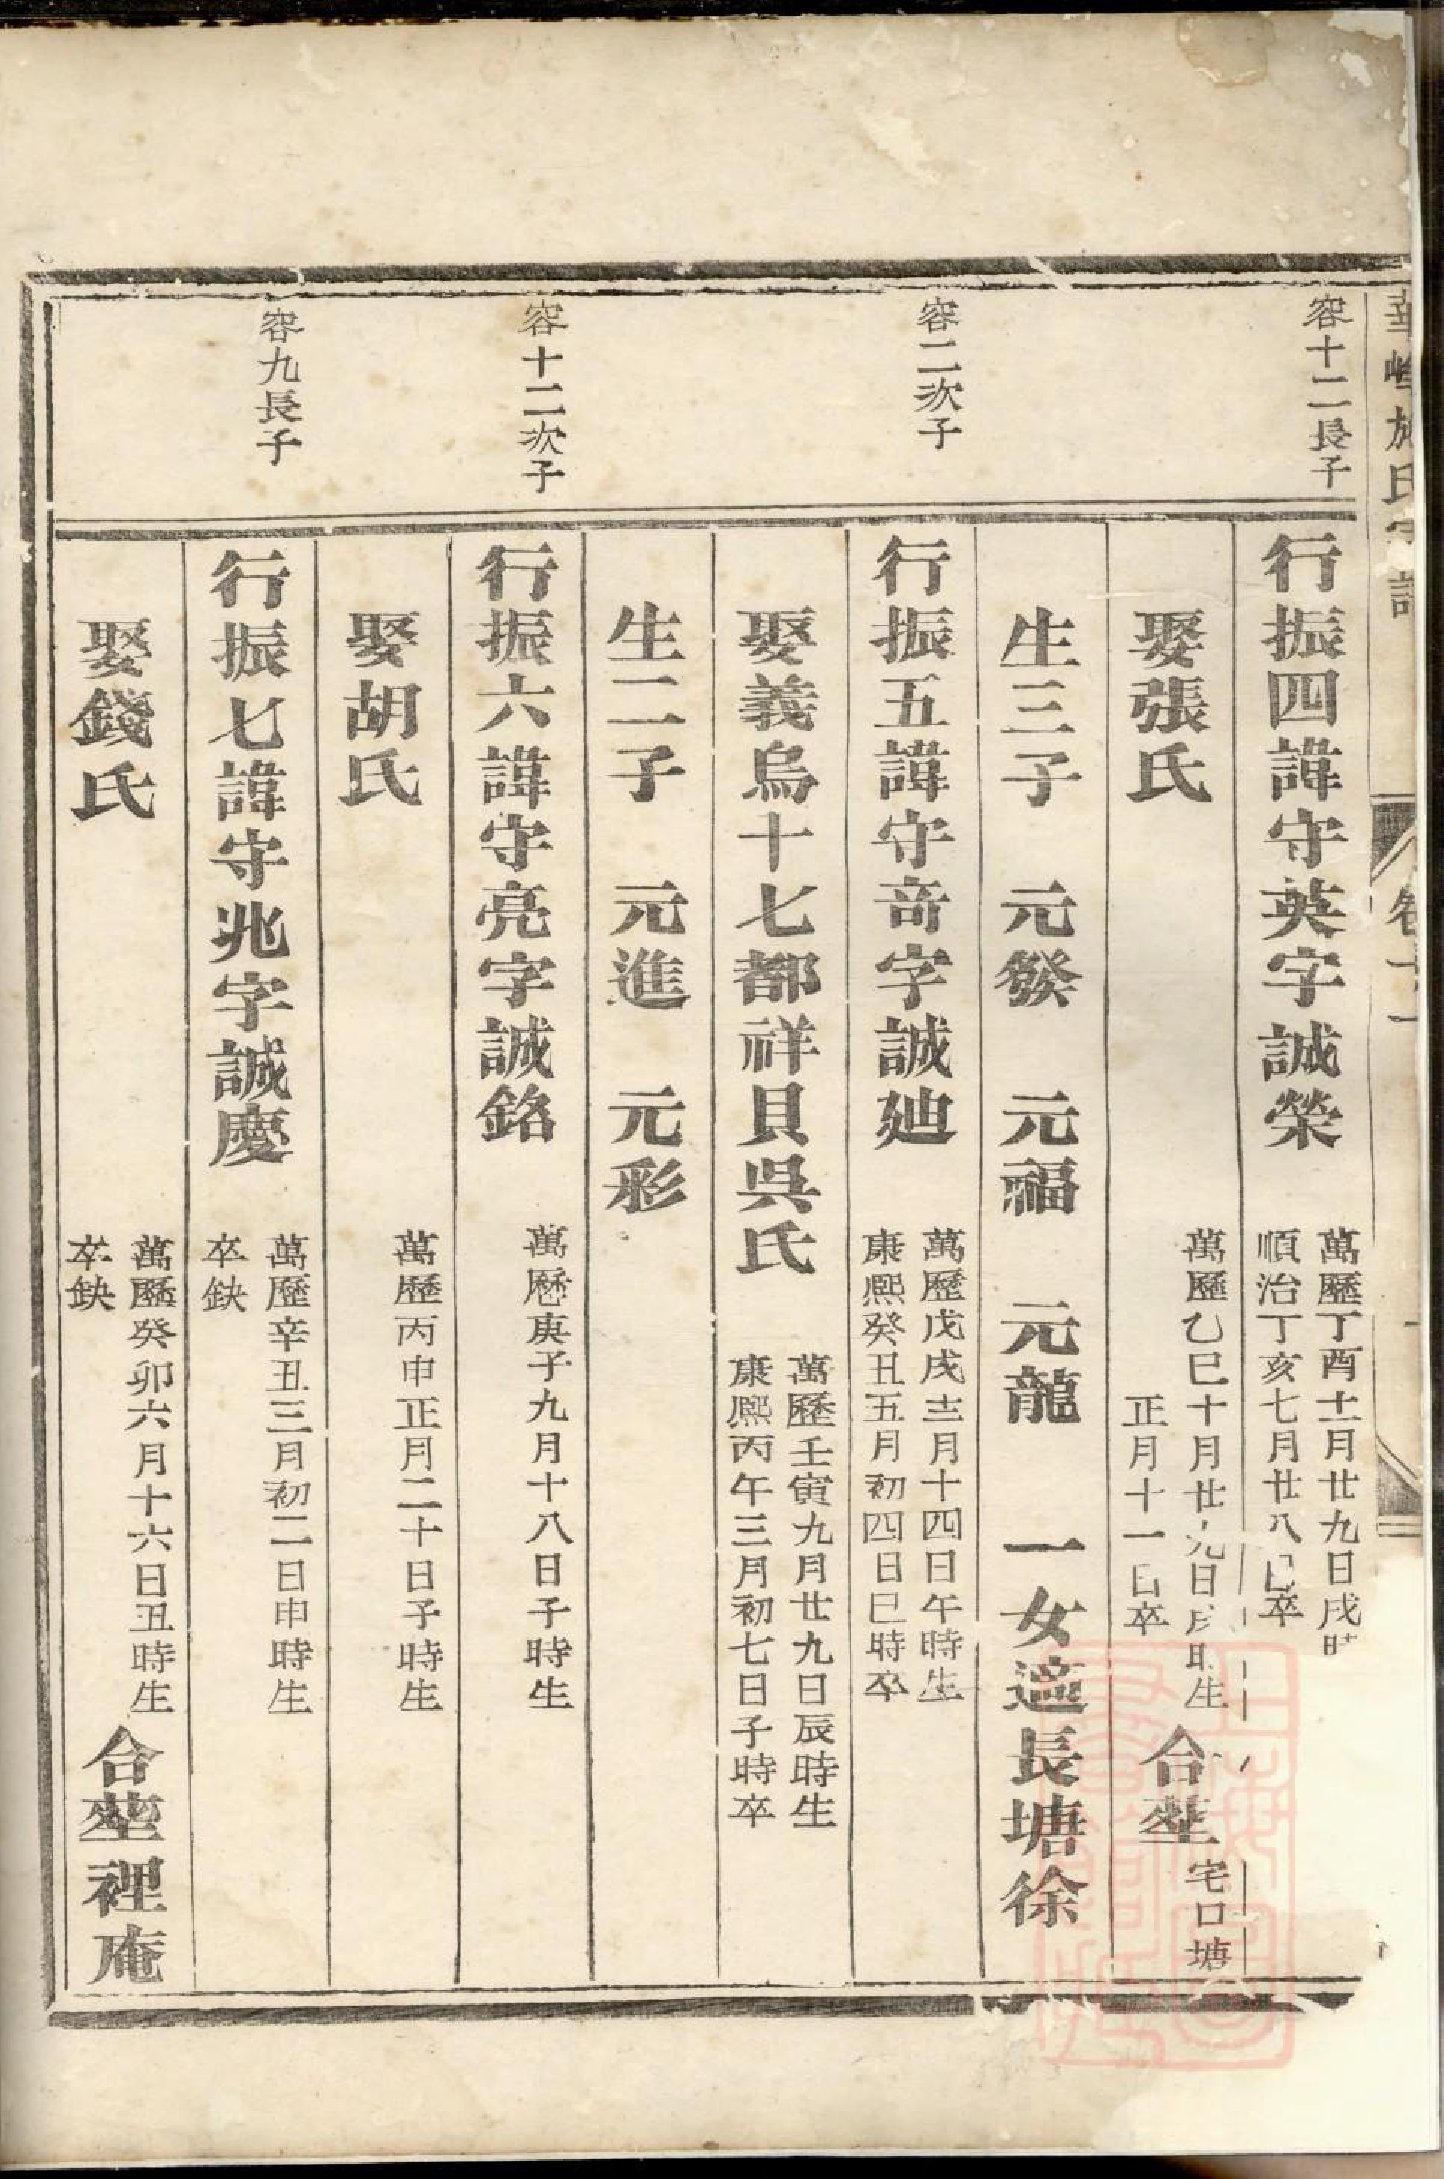 施氏宗譜
容十二長子
行振四諱守英字誠榮
萬歷丁酉十一月廿九日戌時
順治丁亥七月廿八日卒
娶張氏
萬歷乙巳十月廿九日 時生
正月十一日卒
合塟
宅口塘
生三子 元發 元福 元龍 一女適長塘徐
容二次子
行振五諱守奇字誠廸
萬歷戊戌十二月十四日午時生
康熙癸丑五月初四日巳時卒
娶義烏十七都祥貝吳氏
萬歷壬寅九月廿九日辰時生
康熙丙午三月初七日子時卒
生二子 元進 元彩
容十二次子
行振六諱守亮字誠銘
萬歷庚子九月十八日子時生
娶胡氏
萬歷丙申正月二十日子時生
容九長子
行振七諱守兆字誠慶
萬歷辛丑三月初二日申時生
卒缺
娶錢氏
萬歷癸卯六月十六日丑時生
卒缺
合塟裡庵